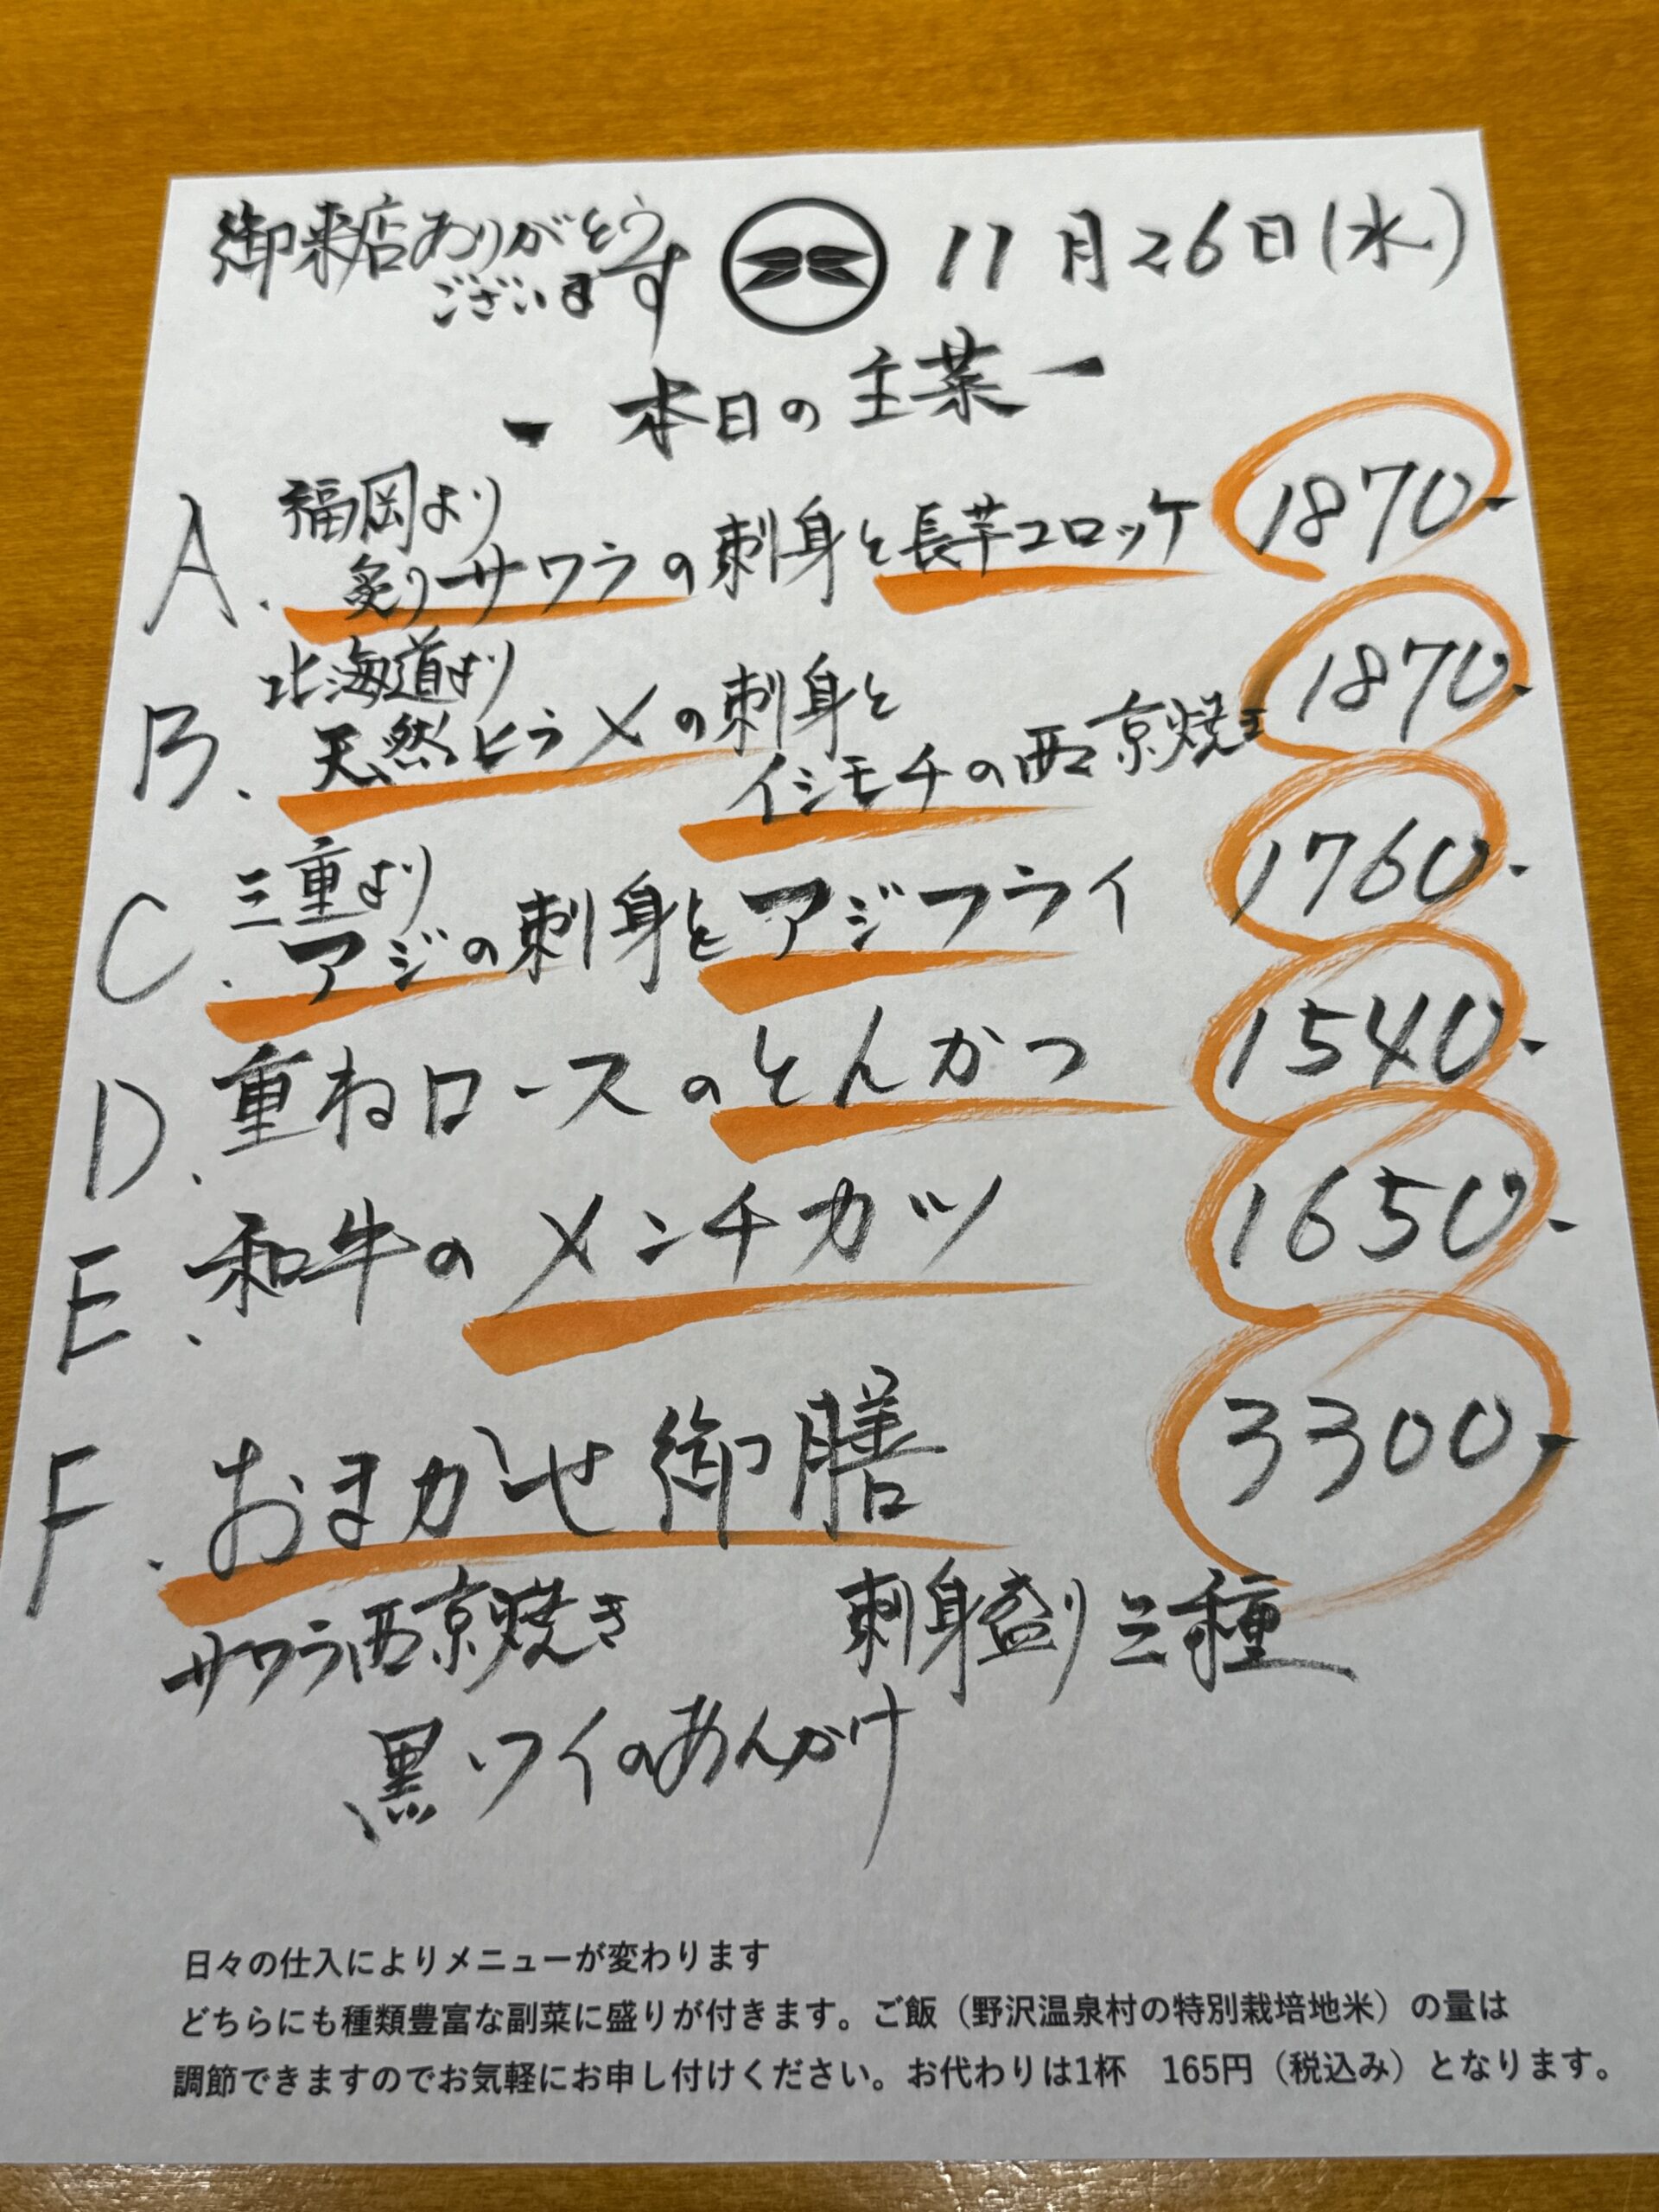 御来店ありがとう
ございます
11月26日(水)
- 本日の主菜 -
A. 福岡より
炙りサワラの刺身と長芋コロッケ 1870-
B. 北海道より
天然ヒラメの刺身と
イシモチの西京焼き 1870-
C. 三重より
アジの刺身とアジフライ 1760-
D. 重ねロースのとんかつ 1540-
E. 和牛のメンチカツ 1650-
F. おまかせ御膳 3300-
サワラ西京焼き 刺身盛り三種
黒ソイのあんかけ
日々の仕入によりメニューが変わります
どちらにも種類豊富な副菜に盛りが付きます。ご飯（野沢温泉村の特別栽培地米）の量は
調節できますのでお気軽にお申し付けください。お代わりは1杯　165円（税込み）となります。